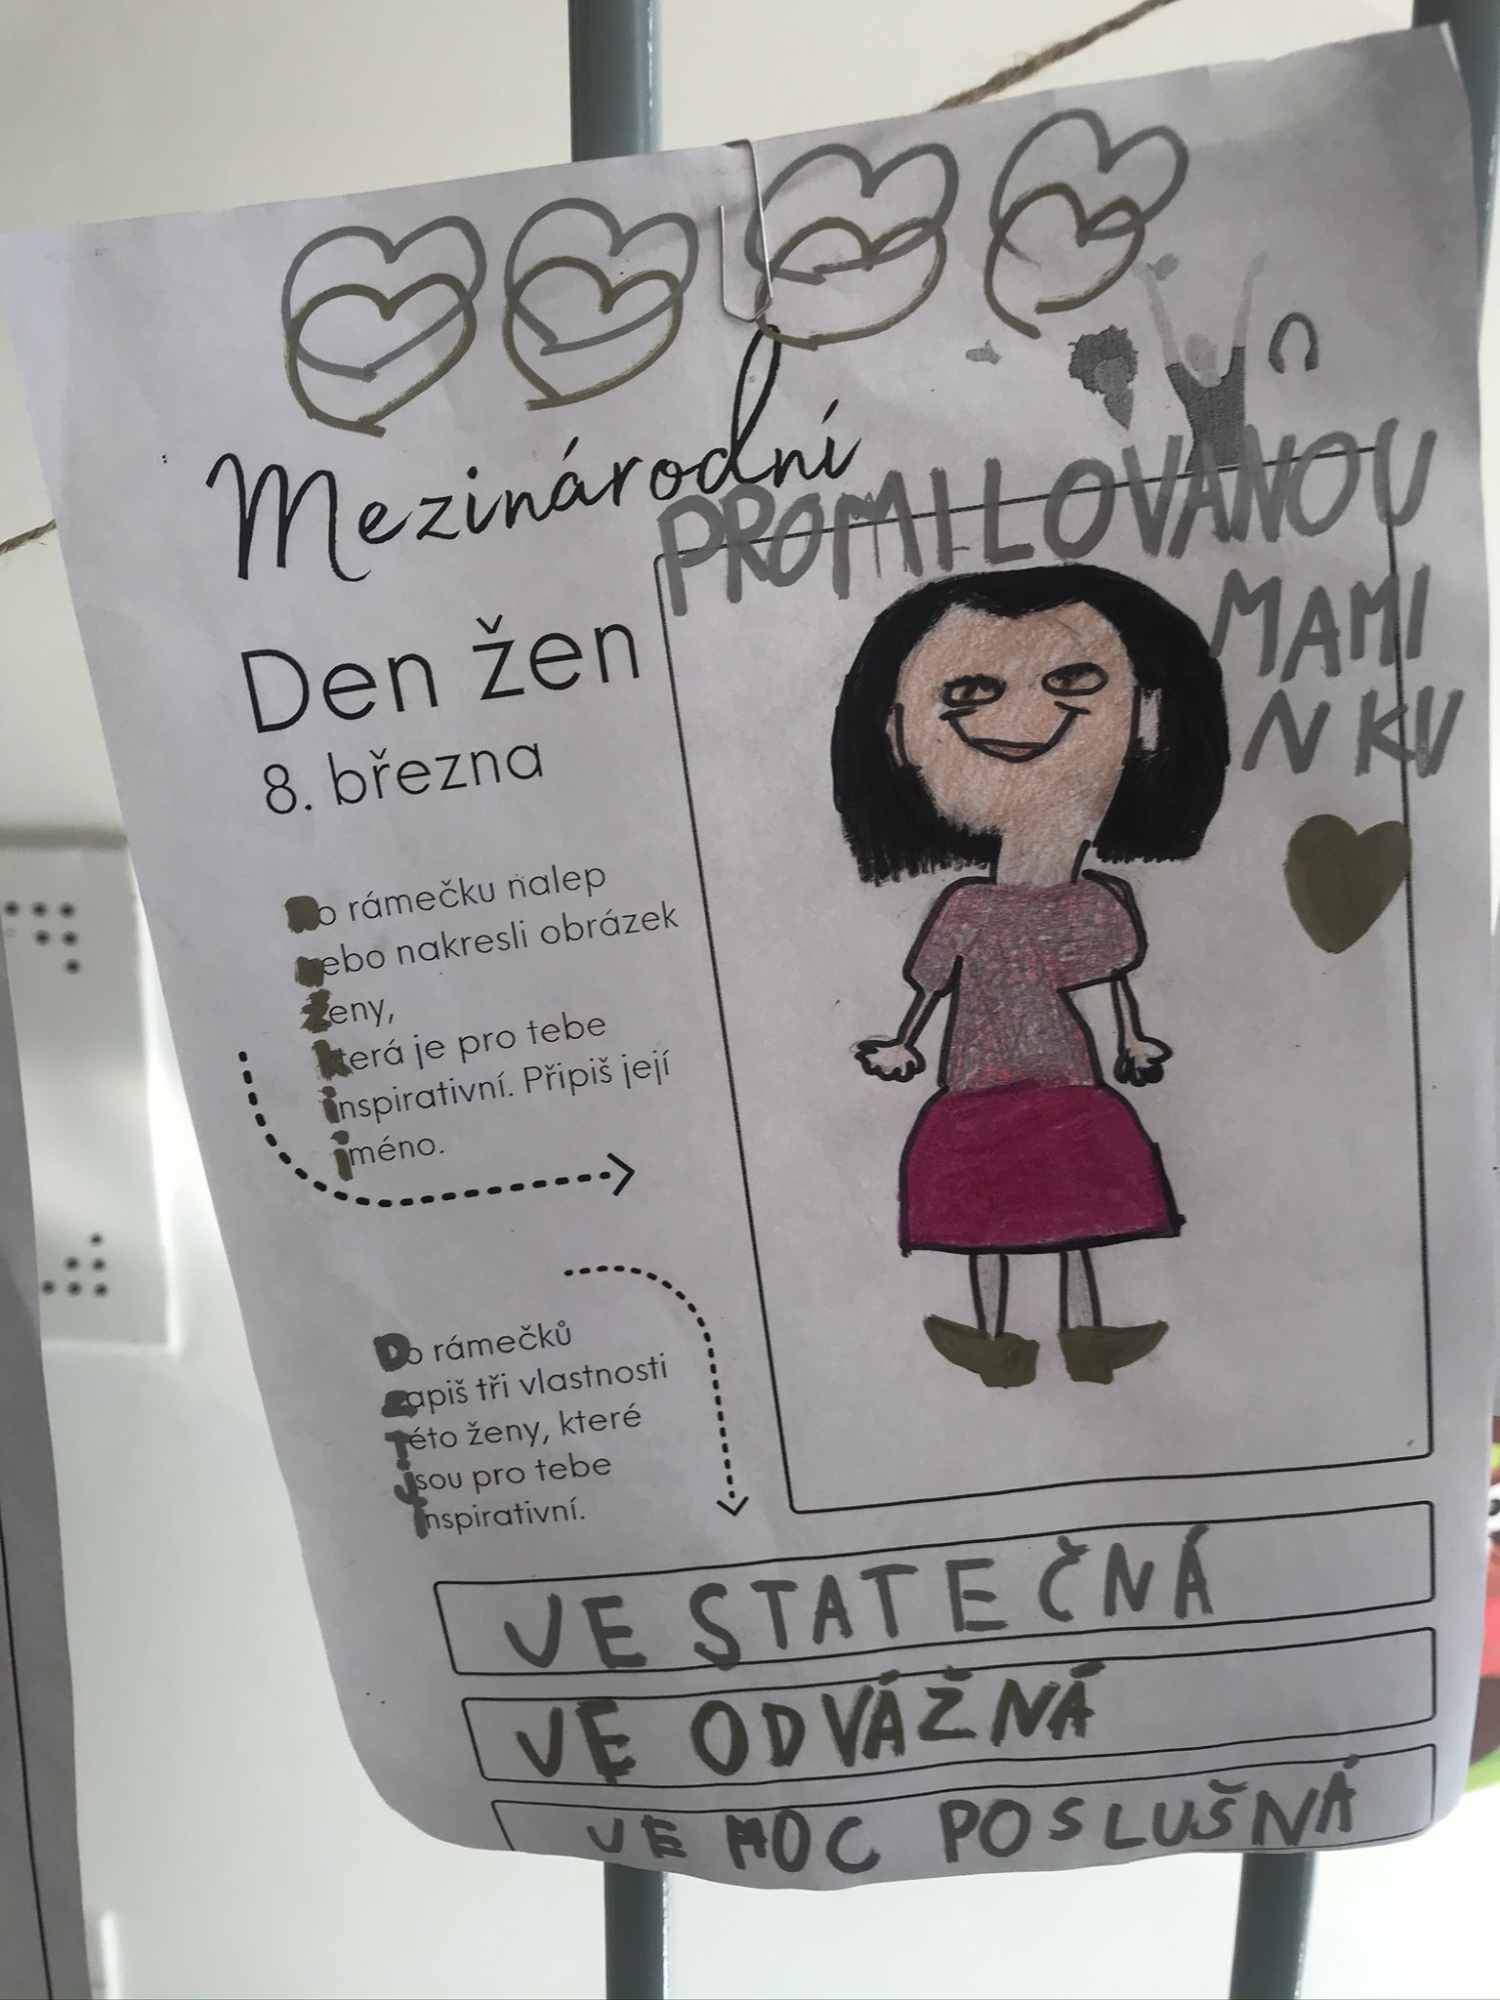 Mezinárodní
Den žen
8. března
PROMILOVANOU
MAMI
NKU
Do rámečku nalep
nebo nakresli obrázek
ženy,
která je pro tebe
inspirativní. Připiš její
jméno.
Do rámečků
zapiš tři vlastnosti
této ženy, které
jsou pro tebe
inspirativní.
JE STATEČNÁ
JE ODVÁŽNÁ
JE MOC POSLUŠNÁ